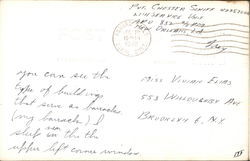 Pvt. Chester Schiff
Convserve Unit
APO 832 c/o PM
New Orleans La
Free
you can see the
type of buildings
that serve as barracks.
(my barracks) I
sleep on the the
upper left corner window
Miss Vivian Elias
553 Willoughby Ave
Brooklyn 6. N.Y